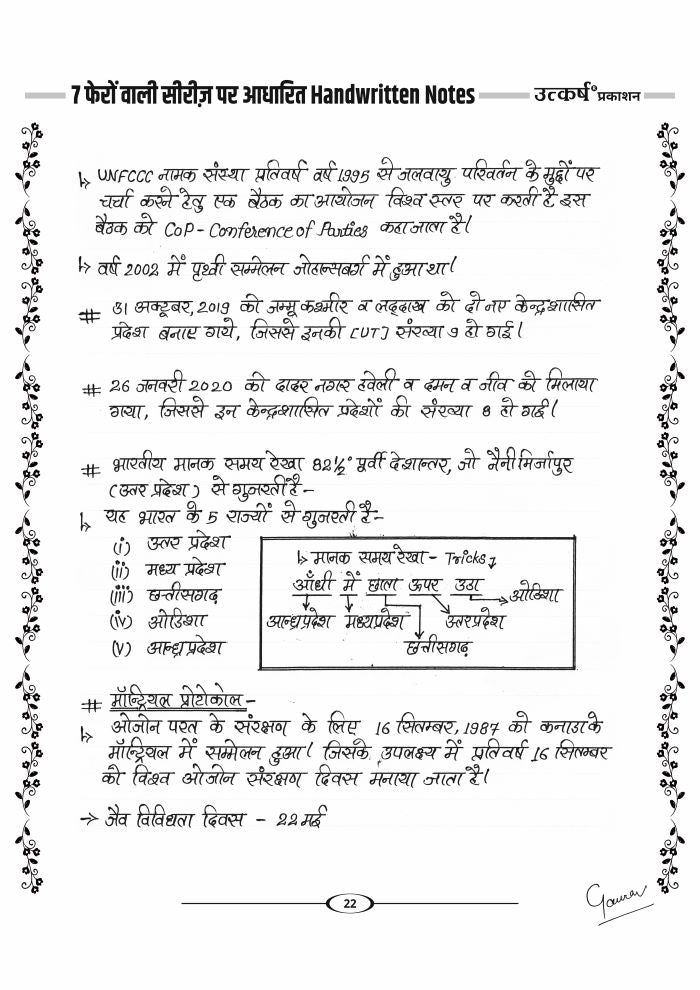 7 फेरों वाली सीरीज़ पर आधारित Handwritten Notes
उत्कर्ष प्रकाशन
↳ UNFCCC नामक संस्था प्रतिवर्ष वर्ष 1995 से जलवायु परिवर्तन के मुद्दों पर
चर्चा करने हेतु एक बैठक का आयोजन विश्व स्तर पर करती है इस
बैठक को CoP - Conference of Parties कहा जाता है।
↳ वर्ष 2002 में पृथ्वी सम्मेलन जोहान्सबर्ग में हुआ था।
# 31 अक्टूबर, 2019 को जम्मू कश्मीर व लद्दाख को दो नए केन्द्रशासित
प्रदेश बनाए गये, जिससे इनकी [UT] संख्या 9 हो गई।
# 26 जनवरी 2020 को दादर नगर हवेली व दमन व नीव को मिलाया
गया, जिससे इन केन्द्रशासित प्रदेशों की संख्या 8 हो गई।
# भारतीय मानक समय रेखा 82½° पूर्वी देशान्तर, जो नैनी मिर्जापुर
(उत्तर प्रदेश) से गुजरती है -
↳ यह भारत के 5 राज्यों से गुजरती है -
(i) उत्तर प्रदेश
(ii) मध्य प्रदेश
(iii) छत्तीसगढ़
(iv) ओडिशा
(v) आन्ध्रप्रदेश
↳ मानक समय रेखा - Tricks ↴
आँधी में छाला ऊपर उठा
ओडिशा
आन्ध्रप्रदेश मध्यप्रदेश उत्तरप्रदेश
छत्तीसगढ़
# मॉन्ट्रियल प्रोटोकोल -
↳ ओजोन परत के संरक्षण के लिए 16 सितम्बर, 1987 को कनाडा के
मॉन्ट्रियल में सम्मेलन हुआ। जिसके उपलक्ष्य में प्रतिवर्ष 16 सितम्बर
को विश्व ओजोन संरक्षण दिवस मनाया जाता है।
→ जैव विविधता दिवस - 22 मई
22
Gaurav